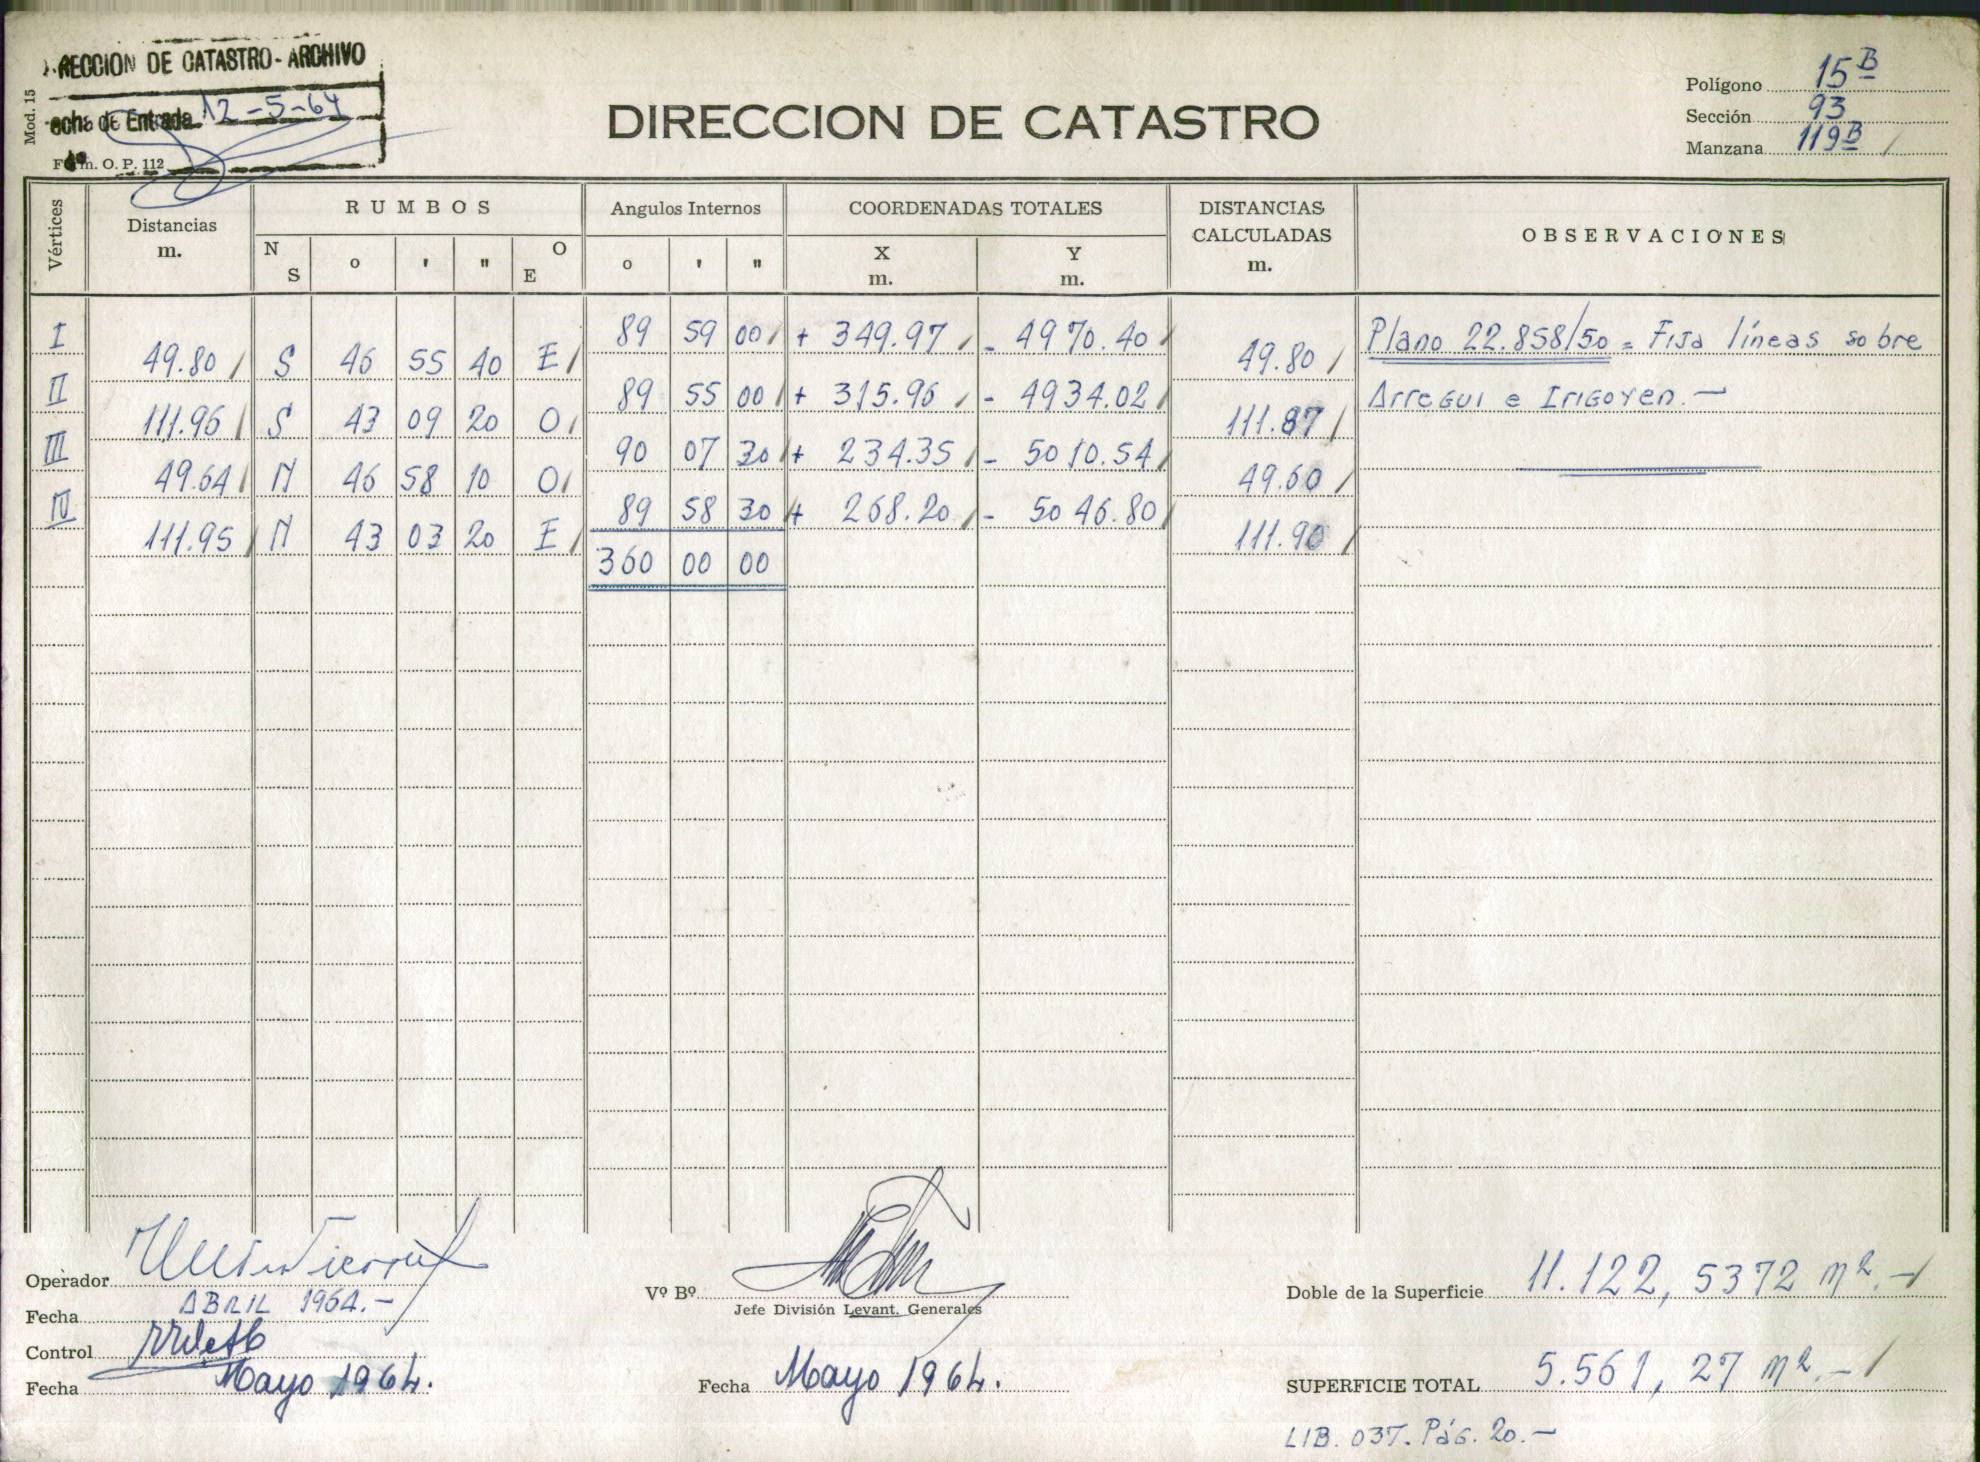 RECCION DE CATASTRO - ARCHIVO
echa de Entrada 12-5-64
Mod. 15
Form. O. P. 112
DIRECCION DE CATASTRO
Polígono 15 B
Sección 93
Manzana 119 B
Vértices
Distancias m.
RUMBOS
N S o ' " O E
Angulos Internos
o ' "
COORDENADAS TOTALES
X m. Y m.
DISTANCIAS CALCULADAS m.
OBSERVACIONES
I 89 59 00 + 349.97 - 4970.40
49.80 S 46 55 40 E 49.80
Plano 22.858/50 = Fija líneas sobre
II 89 55 00 + 315.96 - 4934.02
Arregui e Irigoyen.-
111.96 S 43 09 20 O 111.87
III 90 07 30 + 234.35 - 5010.54
49.64 N 46 58 10 O 49.60
IV 89 58 30 + 268.20 - 5046.80
111.95 N 43 03 20 E 111.90
360 00 00
Operador
Fecha ABRIL 1964.-
Control
Fecha Mayo 1964.
Vº Bº
Jefe División Levant. Generales
Fecha Mayo 1964.
Doble de la Superficie 11.122, 5372 m².-
SUPERFICIE TOTAL 5.561, 27 m².-
LIB. 037. Pág. 20.-